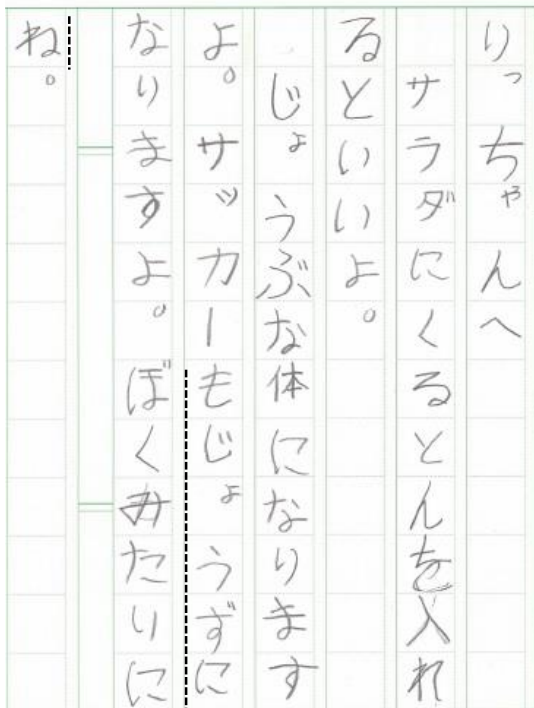 りっちゃんへ
サラダにくるとんを入れ
るといいよ。
じょうぶな体になります
よ。サッカーもじょうずに
なりますよ。ぼくみたりに
ね。